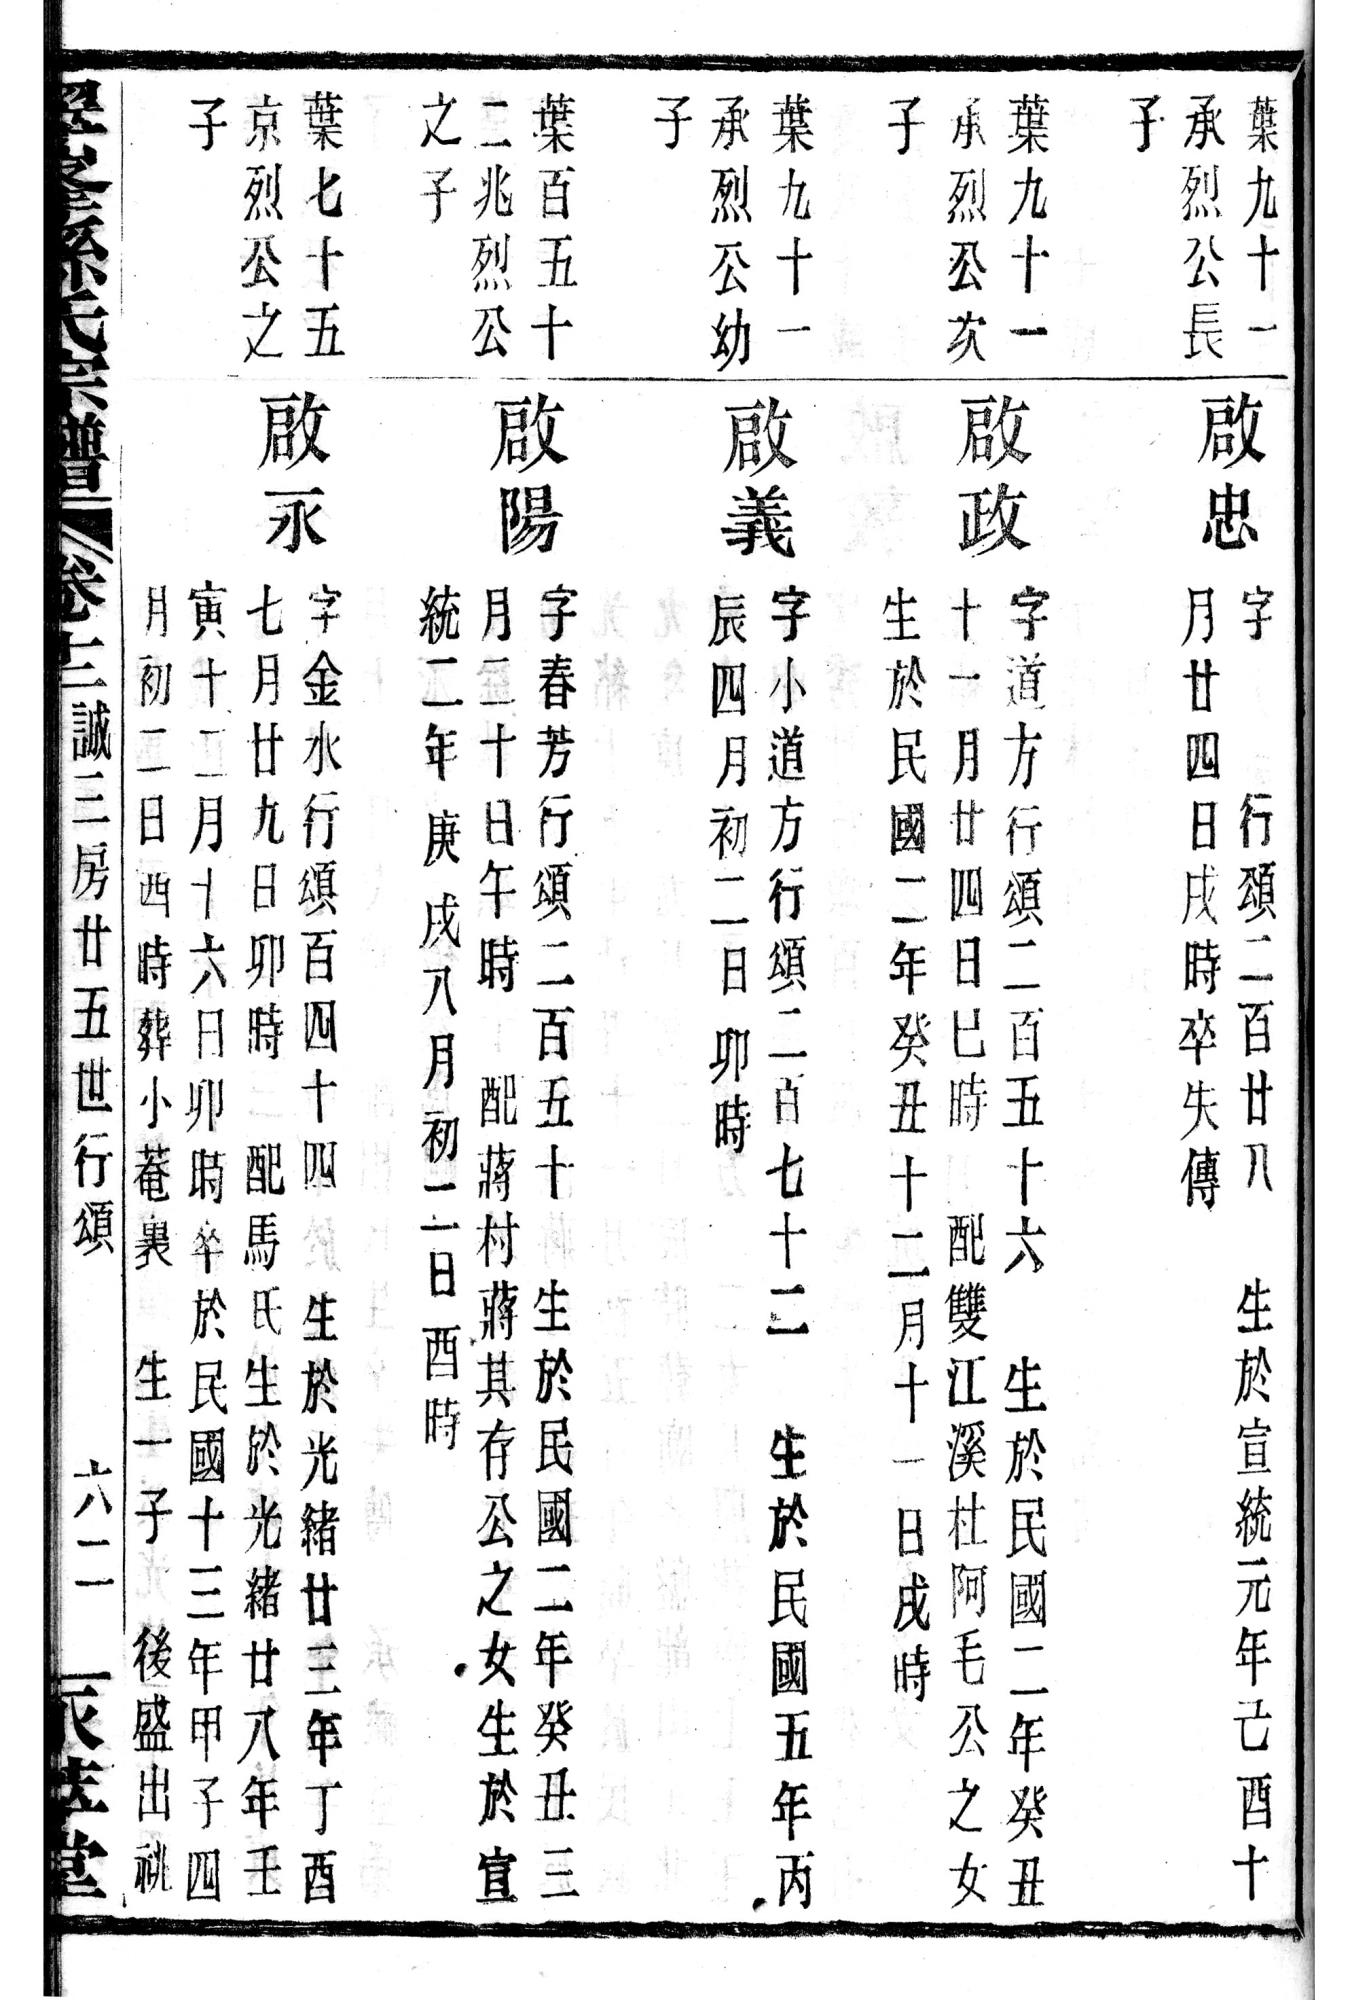 葉九十一
承烈公長
子
啟忠
字　　行頌二百廿八　生於宣統元年己酉十
月廿四日戌時卒失傳
葉九十一
承烈公次
子
啟政
字道方行頌二百五十六　生於民國二年癸丑
十一月廿四日巳時　配雙江溪杜阿毛公之女
生於民國二年癸丑十二月十一日戌時
葉九十一
承烈公幼
子
啟義
字小道方行頌二百七十二　生於民國五年丙
辰四月初二日卯時
葉百五十
二兆烈公
之子
啟陽
字春芳行頌二百五十　生於民國二年癸丑三
月二十日午時　配蔣村蔣其存公之女生於宣
統二年庚戌八月初二日酉時
葉七十五
京烈公之
子
啟永
字金水行頌百四十四　生於光緒廿三年丁酉
七月廿九日卯時　配馬氏生於光緒廿八年壬
寅十二月十六日卯時卒於民國十三年甲子四
月初二日酉時葬小菴裏　生一子　後盛出祧
孫氏宗譜　卷十二　誠三房廿五世行頌　六二　萃堂